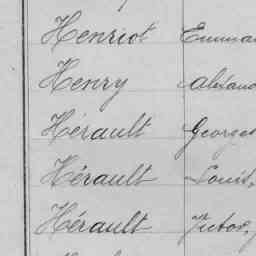 Henriot Emma
Henry Alexand
Hérault Georges
Hérault Louis,
Hérault Victor,